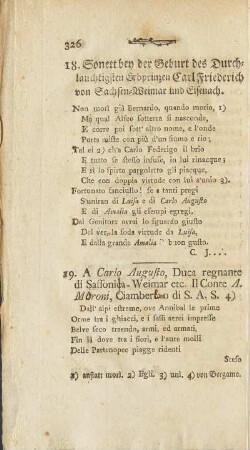 326
18. Sonett bey der Geburt des Durch-
lauchtigsten Erbprinzen Carl Friederich
von Sachsen-Weimar und Eisenach.
Non morì già Bernardo, quando morio, 1)
Ma qual Alfeo sotterra si nasconde,
E corre poi sott' altro nome, e l'onde
Porta miste con più d'un fiume e rio;
Tal ei 2) ch'a Carlo Federigo il brio
E tutto se stesso infuse, in lui rinacque;
E sì lo spirto pargoletto gli piacque,
Che con doppia virtude con lui s'unio 3).
Fortunato fanciullo! se a tanti pregi
S'uniran di Luisa e di Carlo Augusto
E di Amalia gli esempi egregi,
Dal Genitore avrai lo sguardo giusto
Del ver, la soda virtude da Luisa,
E dalla grande Amalia il buon gusto.
C. J....
19. A Carlo Augusto, Duca regnante
di Sassonia-Weimar etc. Il Conte A.
Moroni, Ciamberlan di S. A. S. 4)
Dall' alpi estreme, ove Annibal le prime
Orme tra i ghiacci, e i sassi aerei impresse
Belve seco traendo, armi, ed armati,
Fin là dove tra i fiori, e l'aure molli
Delle Partenopee piagge ridenti
Steso
1) anstatt morì. 2) Egli. 3) unì. 4) von Bergamo.